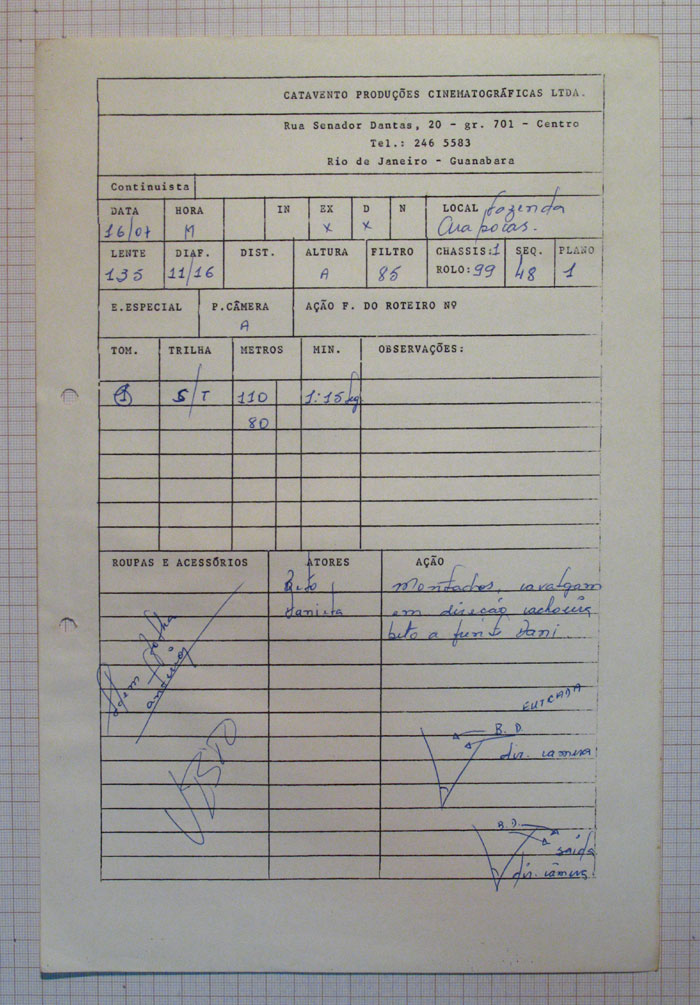 CATAVENTO PRODUÇÕES CINEMATOGRÁFICAS LTDA.
Rua Senador Dantas, 20 - gr. 701 - Centro
Tel.: 246 5583
Rio de Janeiro - Guanabara
Continuista
DATA HORA IN EX D N LOCAL fazenda
16/07 M x x
LENTE DIAF. DIST. ALTURA FILTRO CHASSIS:1 SEQ. PLANO
135 11/16 A 85 ROLO:99 48 1
E.ESPECIAL P.CÂMERA AÇÃO F. DO ROTEIRO Nº
A
TOM. TRILHA METROS MIN. OBSERVAÇÕES:
1 S/T 110 1:15
80
ROUPAS E ACESSÓRIOS ATORES AÇÃO
Beto Montados, cavalgam
em direção
beto a
Idem folha
VISTO
ENTRADA
B. D.
dir. camera
B.D.
saída
dir. câmera